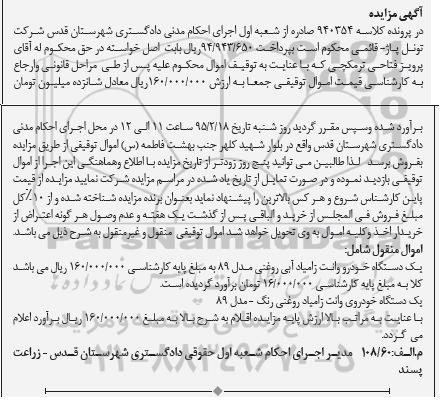 آگهی مزایده
در پرونده کلاسه ۹۴۰۳۵۴ صادره از شعبه اول اجرای احکام مدنی دادگستری شهرستان قدس شرکت
تونل پاژ- قائمی محکوم است بپرداخت ۹۴/۹۴۳/۶۵۰ریال بابت اصل خواسته در حق محکوم له آقای
پرویز فتاحی ترمکچی که با عنایت به توقیف اموال محکوم علیه پس از طی مراحل قانونی وارجاع
به کارشناسی قیمت اموال توقیفی جمعا به ارزش ۱۶۰/۰۰۰/۰۰۰ریال معادل شانزده میلیون تومان
برآورد شده وسپس مقرر گردید روز شنبه تاریخ ۹۵/۲/۱۸ ساعت ۱۱ الی ۱۲ در محل اجرای احکام مدنی
دادگستری شهرستان قدس واقع در بلوار شهید کلهر جنب بهشت فاطمه (س) اموال توقیفی از طریق مزایده
بفروش برسد لذا طالبین می توانید پنج روز زودتر از تاریخ مزایده با اطلاع وهماهنگی این اجرا از اموال
توقیفی بازدید نموده و در صورت تمایل از تاریخ یاد شده در مراسم مزایده شرکت نمایید مزایده از قیمت
پایین کارشناس شروع و هر کس بالاترین را پیشنهاد نماید بعنوان برنده مزایده شناخته شده و از ۱۰٪کل
مبلغ فروش فی المجلس از خرید و الباقی پس از گذشت یک هفته و عدم وصول هر گونه اعتراض از
خریدار اخذ و کلیه اموال به وی تحویل خواهد شد اموال توقیفی منقول و غیرمنقول به شرح ذیل می باشد
اموال منقول شامل:
یک دستگاه خودرو وانت زامیاد آبی روغنی مدل ۸۹ به مبلغ پایه کارشناسی ۱۶۰/۰۰۰/۰۰۰ ریال می باشد
کلا به مبلغ پایه کارشناسی ۱۶/۰۰۰/۰۰۰ تومان برآورد گردیده است.
یک دستگاه خودروی وانت زامیاد روغنی رنگ - مدل ۸۹
با عنایت به مراتب بالا ارزش پایه مزایده اقلام به شرح بالا به مبلغ ۱۶۰/۰۰۰/۰۰۰ ریال برآورد اعلام
می گردد.
م.الف:۱۰۸/۶۰ مدیر اجرای احکام شعبه اول حقوقی دادگستری شهرستان قدس - زراعت
پسند
۰۲۱-۸۸۳۴۹۶۷۰-۵